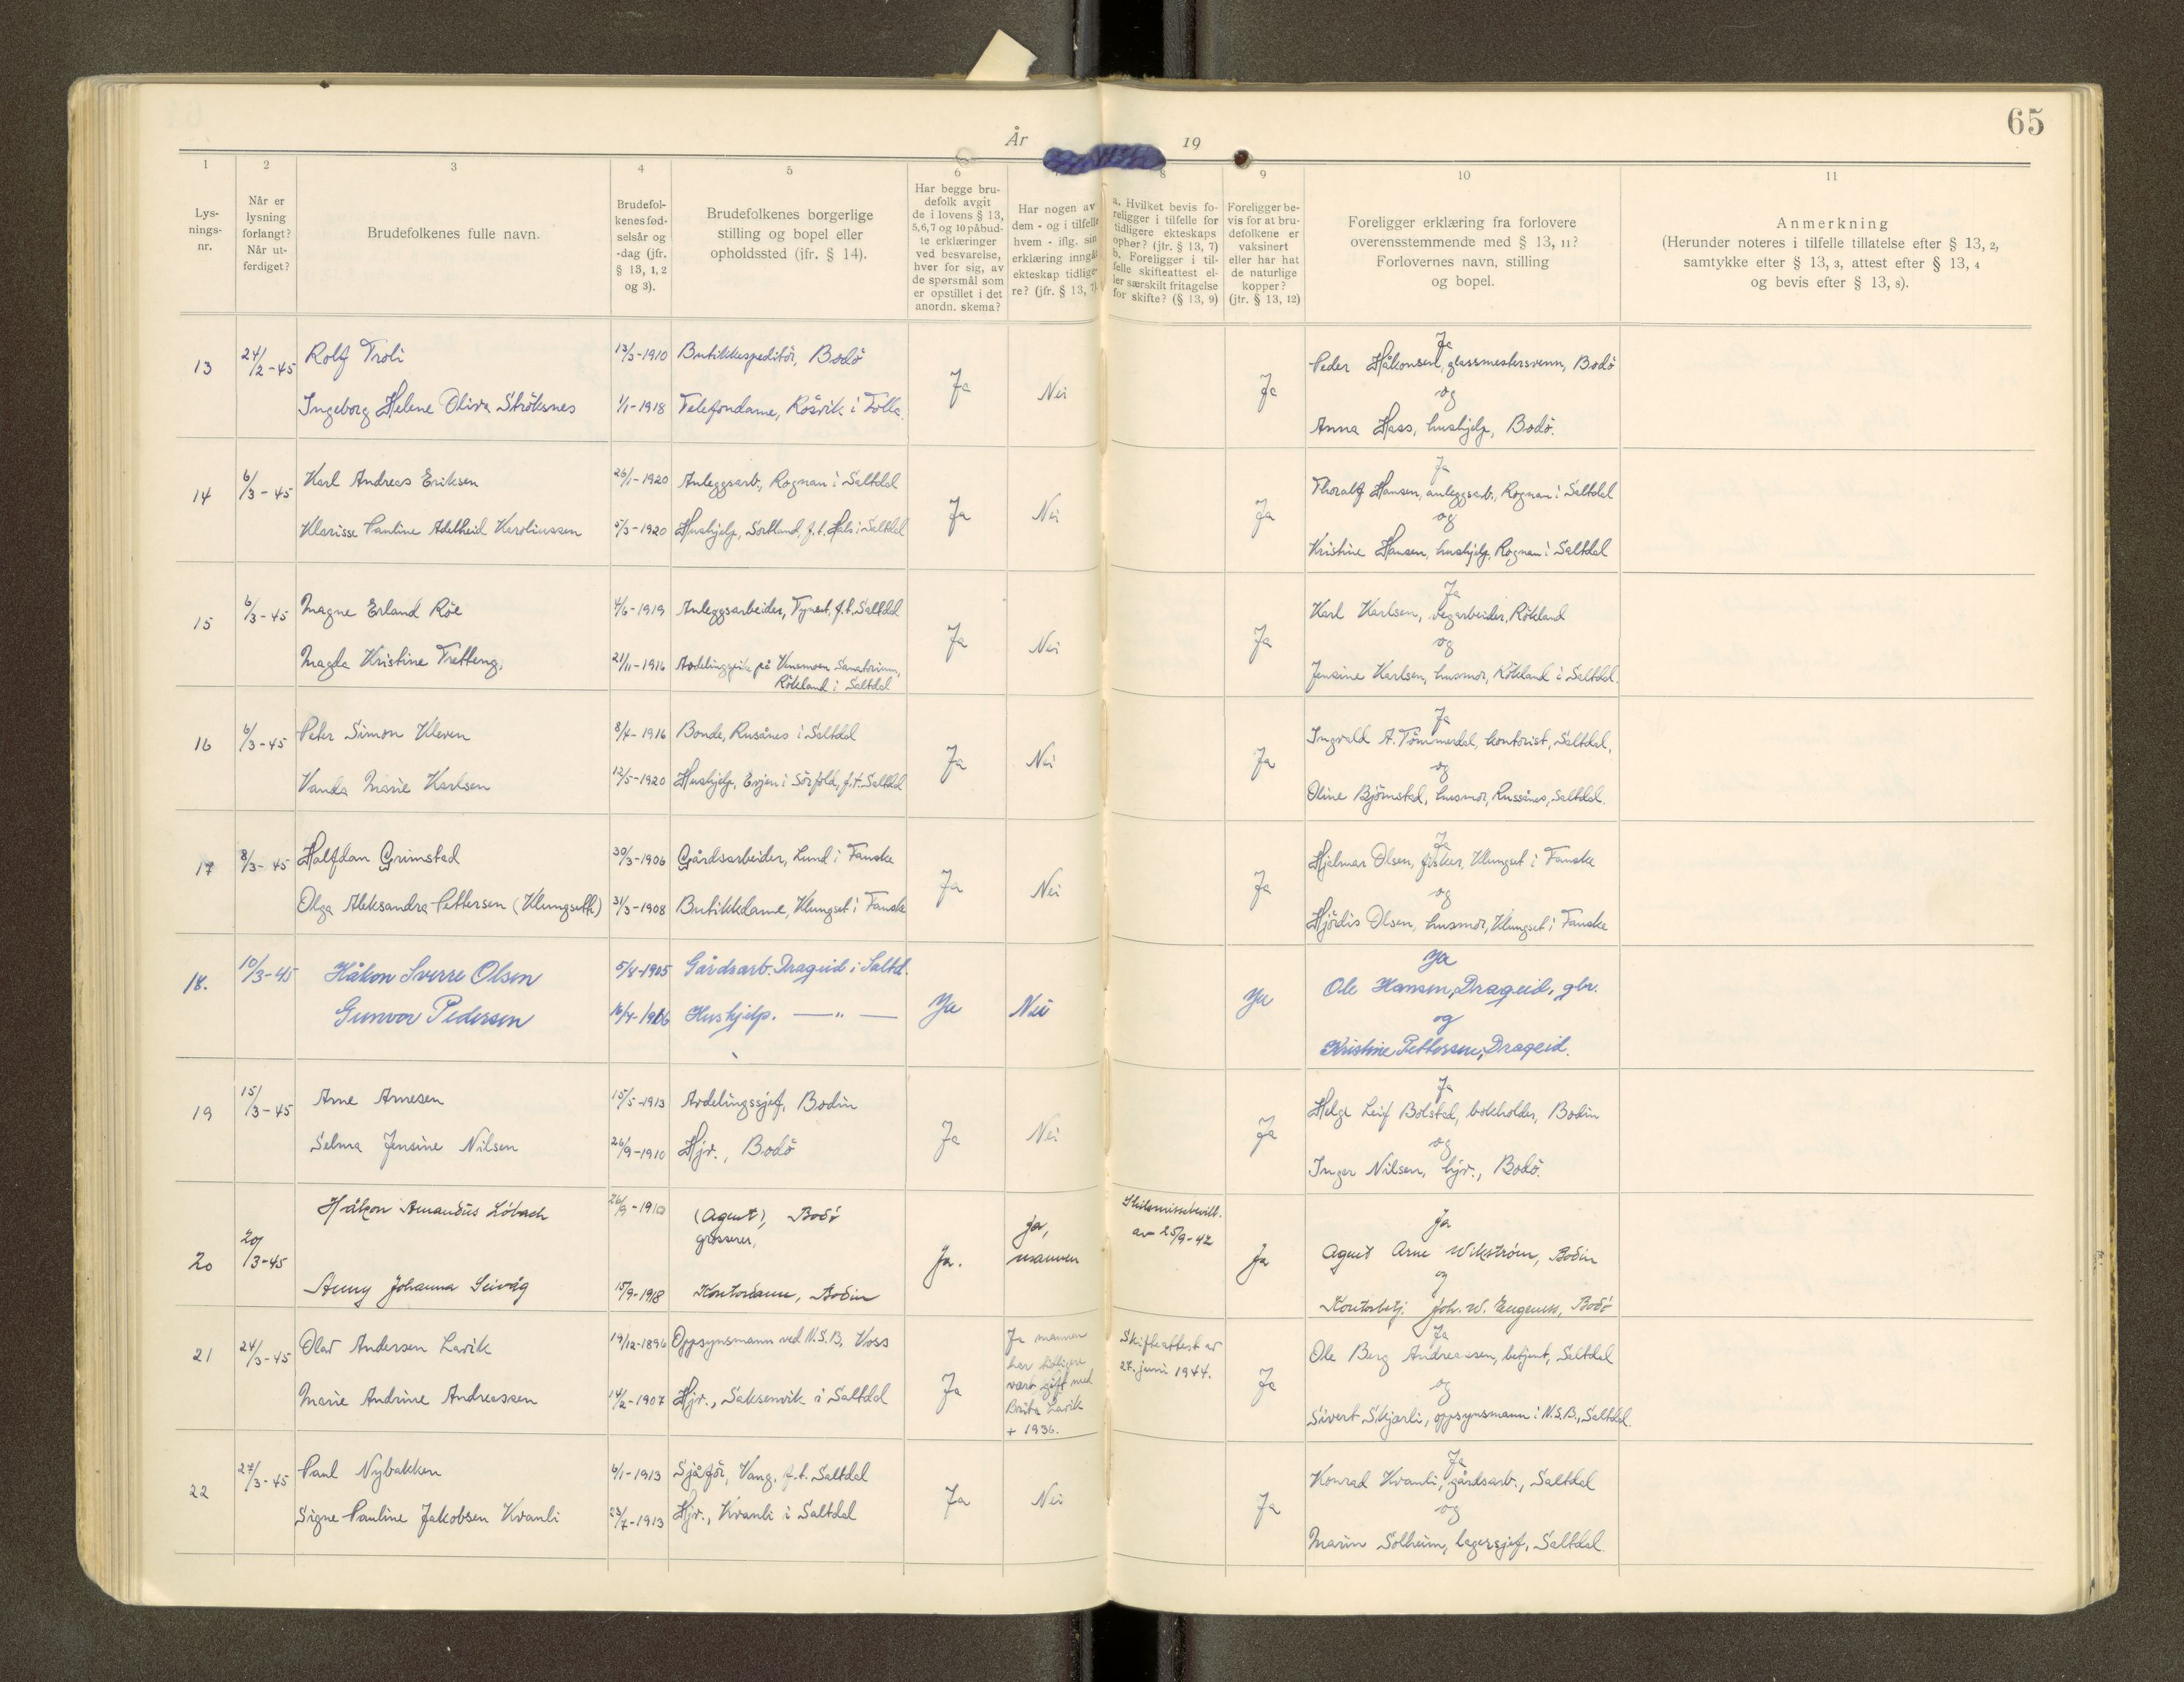 65
År 19
1 2 3 4 5 6 8 9 10 11
Lys-
nings-
nr.
Når er
lysning
forlangt?
Når ut-
ferdiget?
Brudefolkenes fulle navn.
Brudefol-
kenes fød-
selsår og
-dag (jfr.
§ 13, 1, 2
og 3).
Brudefolkenes borgerlige
stilling og bopel eller
opholdssted (jfr. § 14).
Har begge bru-
defolk avgit
de i lovens § 13,
5,6,7 og 10 påbud-
te erklæringer
ved besvarelse,
hver for sig, av
de spørsmål som
er opstillet i det
anordn. skema?
Har nogen av
dem - og i tilfelle
hvem - iflg. sin
erklæring inngå
ekteskap tidlige-
re? (jfr. § 13, 7)
a. Hvilket bevis fo-
religger i tilfelle for
tidligere ekteskaps
ophør? (jfr. § 13, 7)
b. Foreligger i til-
felle skifteattest el-
ler særskilt fritagelse
for skifte? (§ 13, 9)
Foreligger be-
vis for at bru-
defolkene er
vaksinert
eller har hat
de naturlige
kopper?
(jfr. § 13, 12)
Foreligger erklæring fra forlovere
overensstemmende med § 13, 11?
Forlovernes navn, stilling
og bopel.
Anmerkning
(Herunder noteres i tilfelle tillatelse efter § 13, 2,
samtykke efter § 13, 3, attest efter § 13, 4
og bevis efter § 13, 8).
13 24/2-45 Rolf Troli 13/3-1910 Butikkespeditör, Bodö
Ingeborg Helene Oliva Ströksnes 1/1-1918 Telefondame, Rösvik i Folla.
Ja Nei Ja
Ja
Peder Håkonsen, glassmestersvenn, Bodö
og
Anna Hass, hushjelp, Bodö.
14 6/3-45 Karl Andreas Eriksen 26/1-1920 Anleggsarb., Rognan i Saltdal
Klarisse Pauline Adelheid Karoliussen 5/3-1920 Hushjelp, Sortland, f.t. Hals i Saltdal
Ja Nei Ja
Ja
Thoralf Hansen, anleggsarb., Rognan i Saltdal
og
Kristine Hansen, hushjelp, Rognan i Saltdal
15 6/3-45 Magne Erland Röe 4/6-1919 Anleggsarbeider, Tynset, f.t. Saltdal
Magda Kristine Tretteng, 21/11-1916 på Vensmoen Sanatorium,
Rökland i Saltdal
Ja Nei Ja
Ja
Karl Karlsen, vegarbeider, Rökland
og
Jensine Karlsen, husmor, Rökland i Saltdal.
16 6/3-45 Peter Simon Kleven 8/4-1916 Bonde, Rusånes i Saltdal
Vanda Marie Karlsen 12/5-1920 Hushjelp, Evjen i Sörfold, f.t. Saltdal
Ja Nei Ja
Ja
Ingvald A. Tömmerdal, kontorist, Saltdal,
og
Oline Björnstad, husmor, Russånes, Saltdal.
17 8/3-45 Halfdan Grimstad 30/3-1906 Gårdsarbeider, Lund i Fauske
Olga Aleksandra Pettersen (Klungseth) 31/3-1908 Butikkdame, Klungset i Fauske
Ja Nei Ja
Ja
Hjalmar Olsen, fisker, Klungset i Fauske
og
Hjördis Olsen, husmor, Klungset i Fauske
18. 10/3-45 Håkon Sverre Olsen 5/4-1905 Gårdsarb. Drageid i Saltd.
Gunvor Pedersen 16/4-1916 Hushjelp. — " —
Ja Nei Ja
Ja
Ole Hansen, Drageid, gbr.
og
Kristine Pettersen, Drageid.
19 15/3-45 Arne Arnesen 15/5-1913 Avdelingssjef, Bodin
Selma Jensine Nilsen 26/9-1910 Hjv., Bodö
Ja Nei Ja
Ja
Helge Leif Bolstad, bokholder, Bodin
og
Inger Nilsen, hjv., Bodö.
20 20/3-45 Håkon Amandus Löbach 26/9-1910 (Agent), Bodö
grosserer,
Jenny Johanna Seivåg 15/9-1918 Kontordame, Bodin
Ja. ja,
mannen
Skilsmissebevill.
av 25/9-42
Ja
Ja
Agent Arne Wikström, Bodin
og
Kontorbetj. Joh. W. Eugeniss, Bodö
21 24/3-45 Olav Andersen Lavik 19/12-1896 Oppsynsmann ved N.S.B, Voss
Marie Andrine Andreassen 14/2-1907 Hjv., Saksenvik i Saltdal
Ja
Ja mannen
har tidligere
vært gift med
Brita Lavik
+ 1936.
Skifteattest av
27. juni 1944.
Ja
Ja
Ole Berg Andreassen, betjent, Saltdal
og
Sivert Skjærli, oppsynsmann i N.S.B., Saltdal.
22 27/3-45 Paul Nybakken 6/1-1913 Sjåför, Vang, f.t. Saltdal
Signe Pauline Jakobsen Kvanli 23/7-1913 Hjv., Kvanli i Saltdal
Ja Nei Ja
Ja
Konrad Kvanli, gårdsarb., Saltdal
og
Marin Solheim, lagersjef, Saltdal.